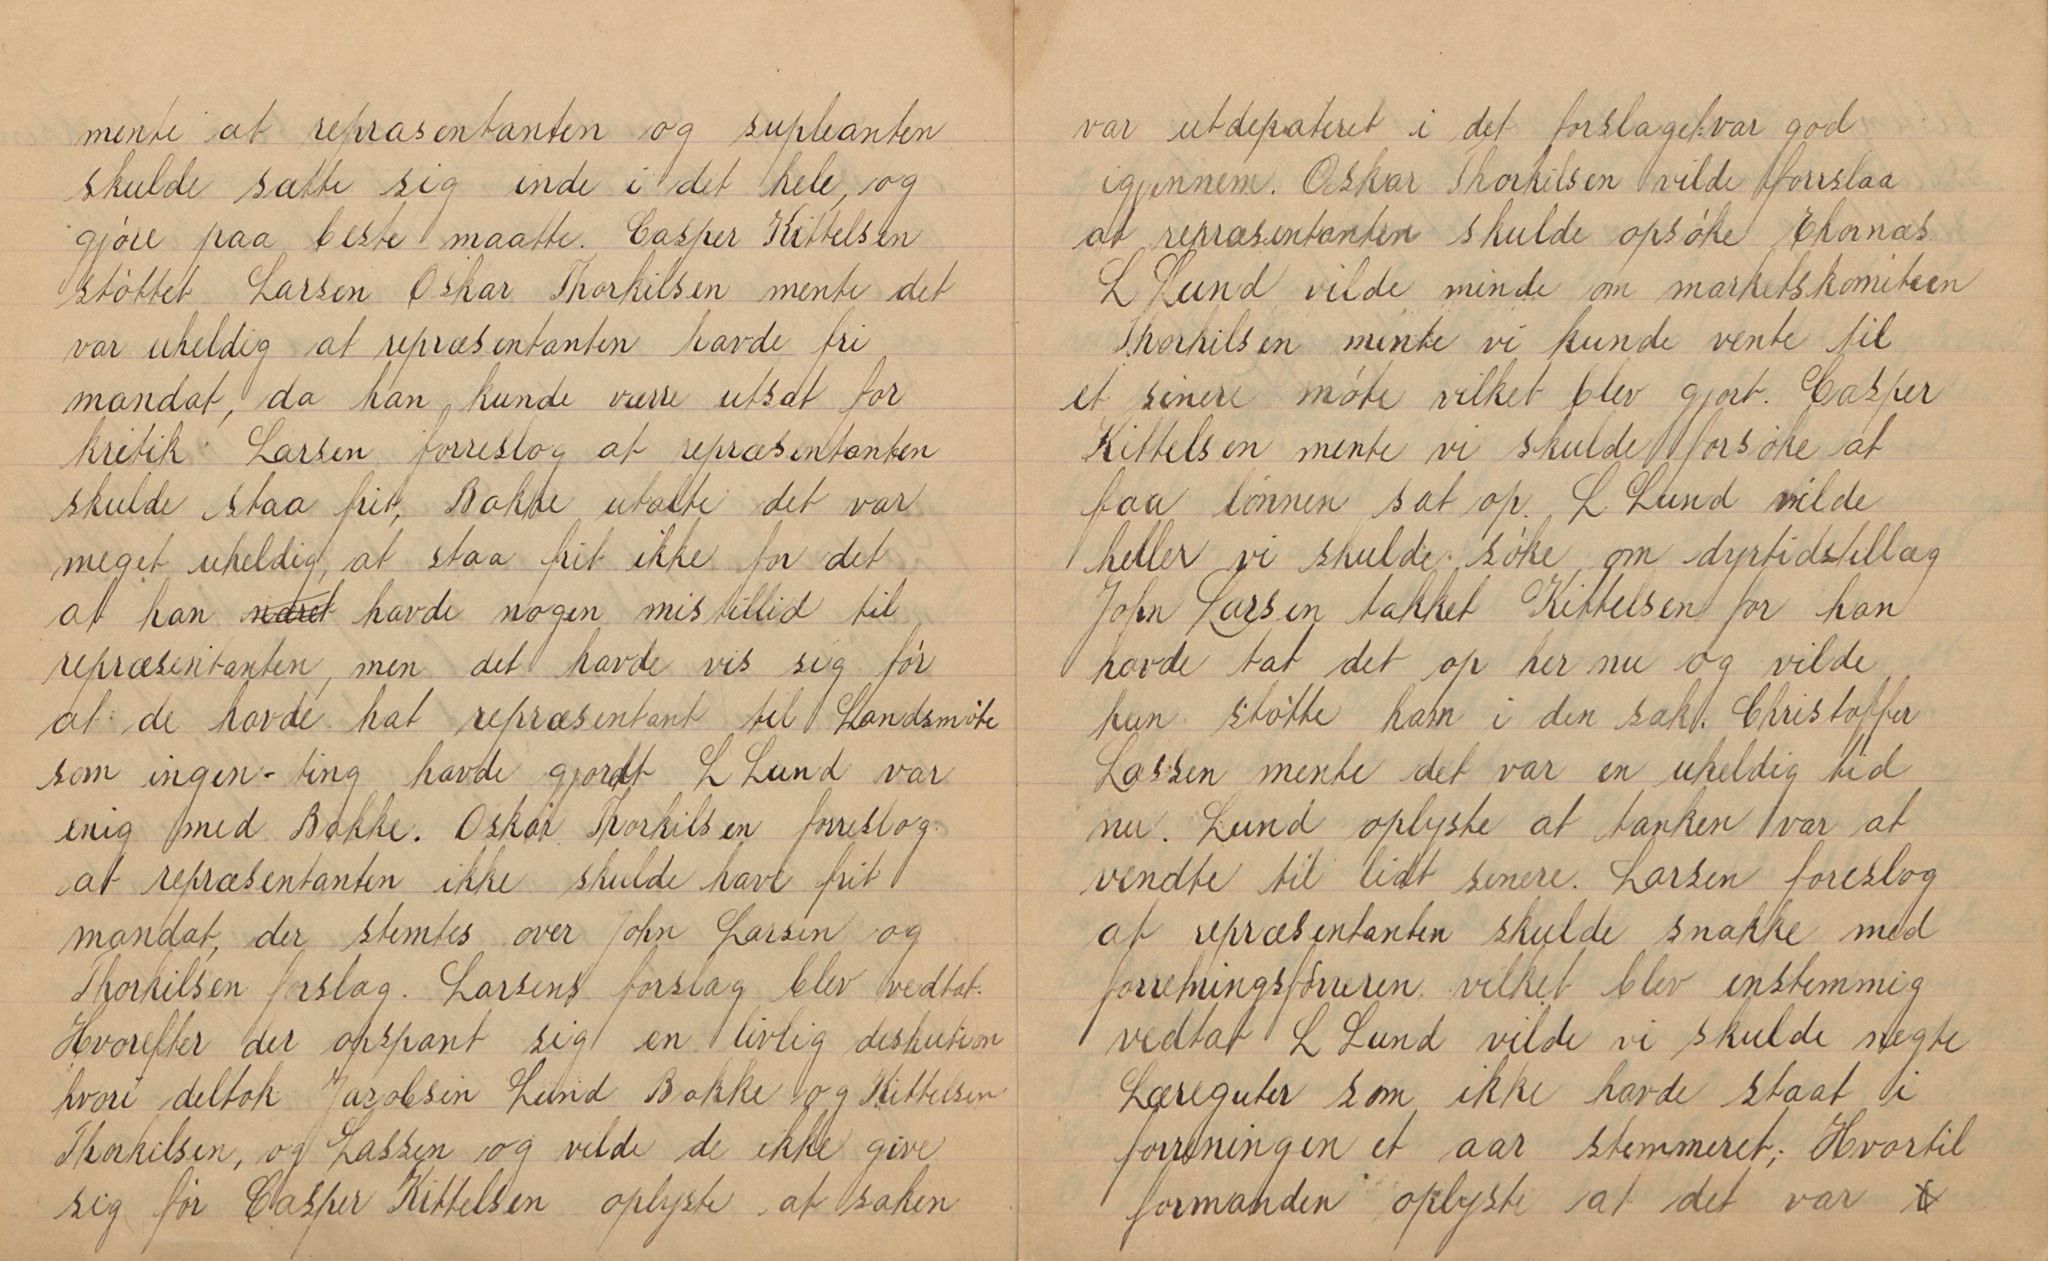 mente at repræsentanten og supleanten
skulde sætte sig inde i det hele, og
gjøre paa beste maatte. Casper Kittelsen
støttet Larsen Oskar Thorkilsen mente det
var uheldig at repræsentanten havde fri
mandat, da han kunde værre utsat for
kritik Larsen forreslog at repræsentanten
skulde staa frit, Bakke utalte det var
meget uheldig, at staa frit ikke for det
at han havde nogen mistillid til
repræsentanten, men det havde vis sig før
at de havde hat repræsentant til Landsmøte
som ingen-ting havde gjordt L Lund var
enig med Bakke. Oskar Thorkilsen forreslog
at repræsentanten ikke skulde have frit
mandat, der stemtes over John Larsen og
Thorkilsen forslag. Larsens forslag blev vedtat.
Hvorefter der opspant sig en livlig deskution
hvori deltok Jacobsen Lund Bakke og Kittelsen
Thorkilsen, og Lassen og vilde de ikke give
sig før Casper Kittelsen oplyste at saken
var utdepateret i det forslaget var god
igjennem. Oskar Thorkilsen vilde forrslaa
at repræsentanten skulde opsøke Thornæs
L Lund vilde minde om marketskomiteen
Thorkilsen mente vi kunde vente til
et sinere møte vilket blev gjort. Casper
Kittelsen mente vi skulde forsøke at
faa lønnen sat op. L Lund vilde
heller vi skulde søke om dyrtidstillæg
John Larsen takket Kittelsen for han
havde tat det op her nu og vilde
kun støtte ham i den sak. Christoffer
Lassen mente det var en uheldig tid
nu. Lund oplyste at tanken var at
vendte til lidt senere. Larsen foreslog
at repræsentanten skulde snakke med
forretningsførreren vilket blev enstemmig
vedtat L Lund vilde vi skulde nægte
Læreguter som ikke havde staat i
forreningen et aar stemmeret; Hvortil
formanden oplyste at det var